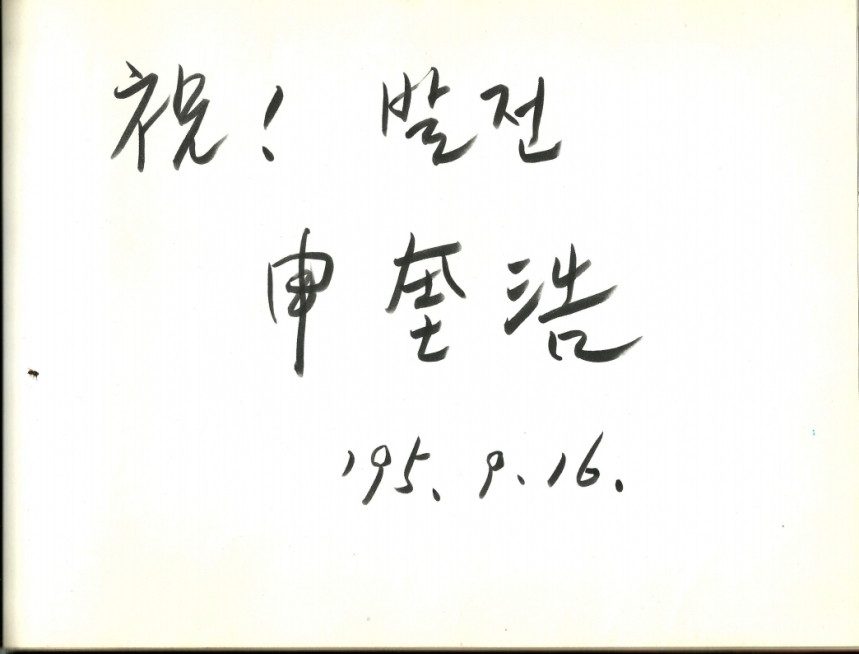 祝! 발전
申奎浩
'95. 9. 16.